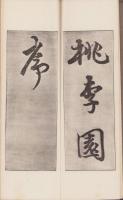 桃李園
序